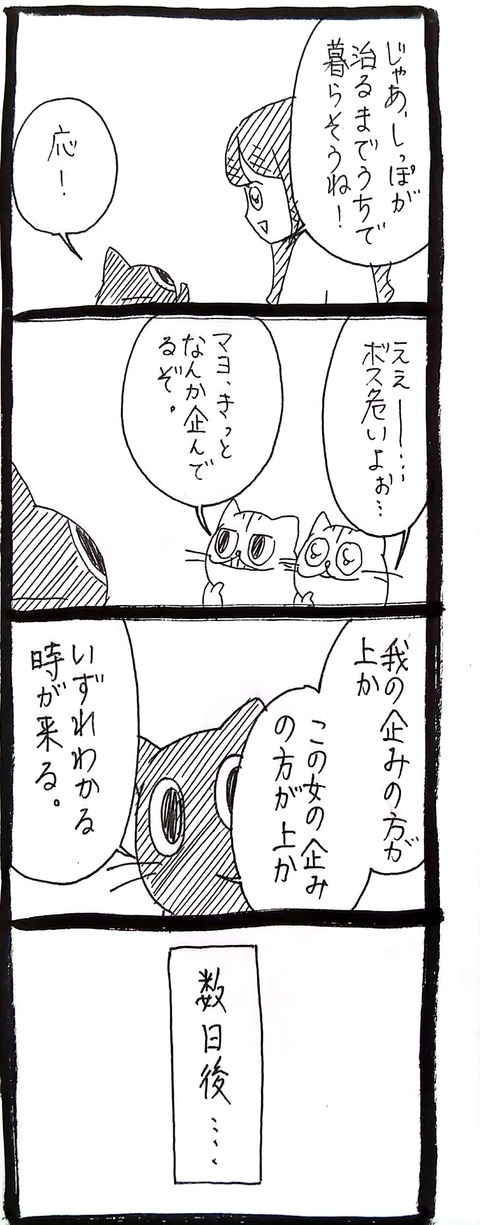 じゃあ、しっぽが
治るまでうちで
暮らそうね！
応！
ええー……
ボス危いよぉ…
マヨ、きっと
なんか企んで
るぞ。
我の企みの方が
上か
この女の企み
の方が上か
いずれわかる
時が来る。
数日後……